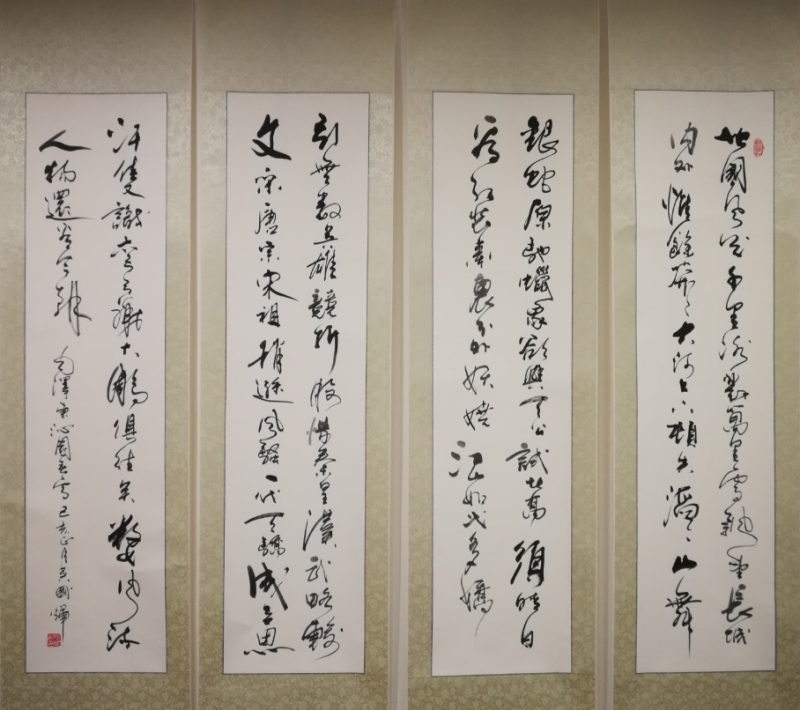 北國風光千里冰封萬里雪飄望長城
内外惟餘莽〻大河上下頓失滔〻山舞
銀蛇原馳蠟象欲與天公試比高須晴日
看紅裝素裹分外妖嬈江山如此多嬌
引無數英雄競折腰惜秦皇漢武略輸
文采唐宗宋祖稍遜風騷一代天驕成吉思
汗隻識彎弓射大鵰俱往矣數風流
人物還看今朝 毛澤東沁園春雪 己亥正月